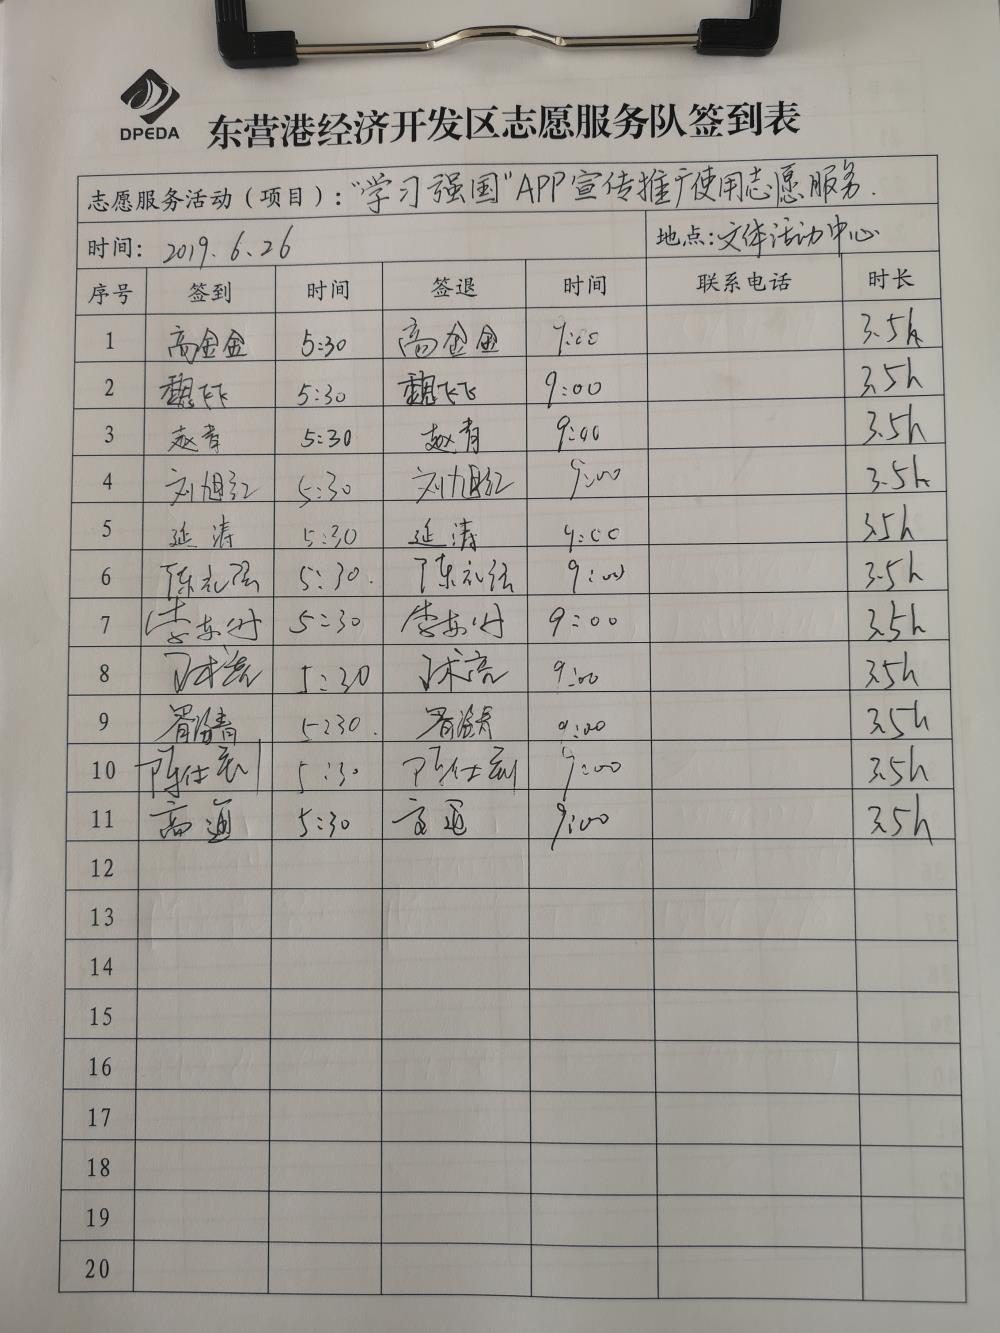 DPEDA
东营港经济开发区志愿服务队签到表
志愿服务活动（项目）："学习强国"APP宣传推广使用志愿服务.
时间: 2019.6.26 地点:文体活动中心
序号 签到 时间 签退 时间 联系电话 时长
1 高金金 5:30 高金金 9:00 3.5h
2 魏飞飞 5:30 魏飞飞 9:00 3.5h
3 赵青 5:30 赵青 9:00 3.5h
4 刘旭红 5:30 刘旭红 9:00 3.5h
5 延涛 5:30 延涛 9:00 3.5h
6 陈礼强 5:30. 陈礼强 9:00 3.5h
7 5:30 9:00 3.5h
8 5:30 9:00 3.5h
9 5:30. 9:00 3.5h
10 5:30 9:00 3.5h
11 高通 5:30 高通 9:00 3.5h
12
13
14
15
16
17
18
19
20